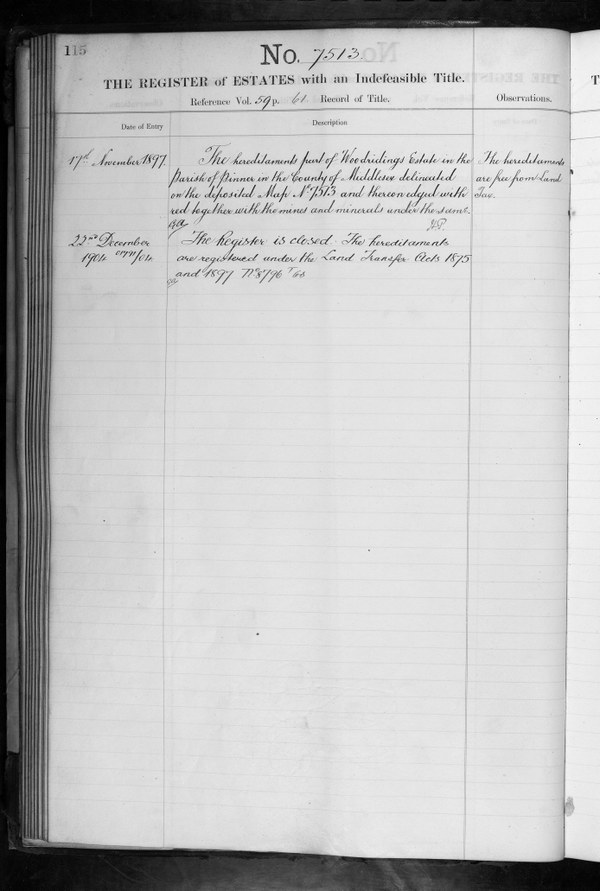 115
No. 7513.
THE REGISTER of ESTATES with an Indefeasible Title.
Reference Vol. 59 p. 61 Record of Title.
Observations.
Date of Entry
Description
17th November 1897.
The hereditaments part of Woodridings Estate in the
Parish of Pinner in the County of Middlesex delineated
on the deposited Map No 7513 and thereon edged with
red together with the mines and minerals under the same
The hereditaments
are free from Land
Tax.
22nd December
1904
The Register is closed. The hereditaments
are registered under the Land Transfer Acts 1875
and 1897 No 8796